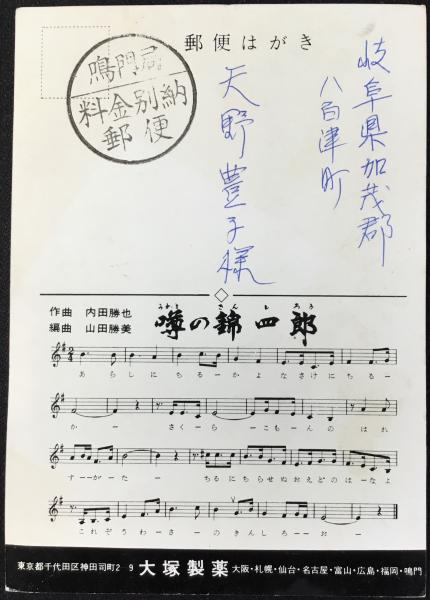 郵便はがき
鳴門局
料金別納
郵便
岐阜県加茂郡
八百津町
天野豊子様
作曲 内田勝也
編曲 山田勝美
うわさ きん し ろう
噂の錦四郎
あらしにちるーかよなさけにちるー
かー さくらーこもーんの はれ
すーーがたー ちるにちらせぬおえどのはーなよ
これぞうわさーのきんしろーーおー
東京都千代田区神田司町2-9 大塚製薬 大阪・札幌・仙台・名古屋・富山・広島・福岡・鳴門